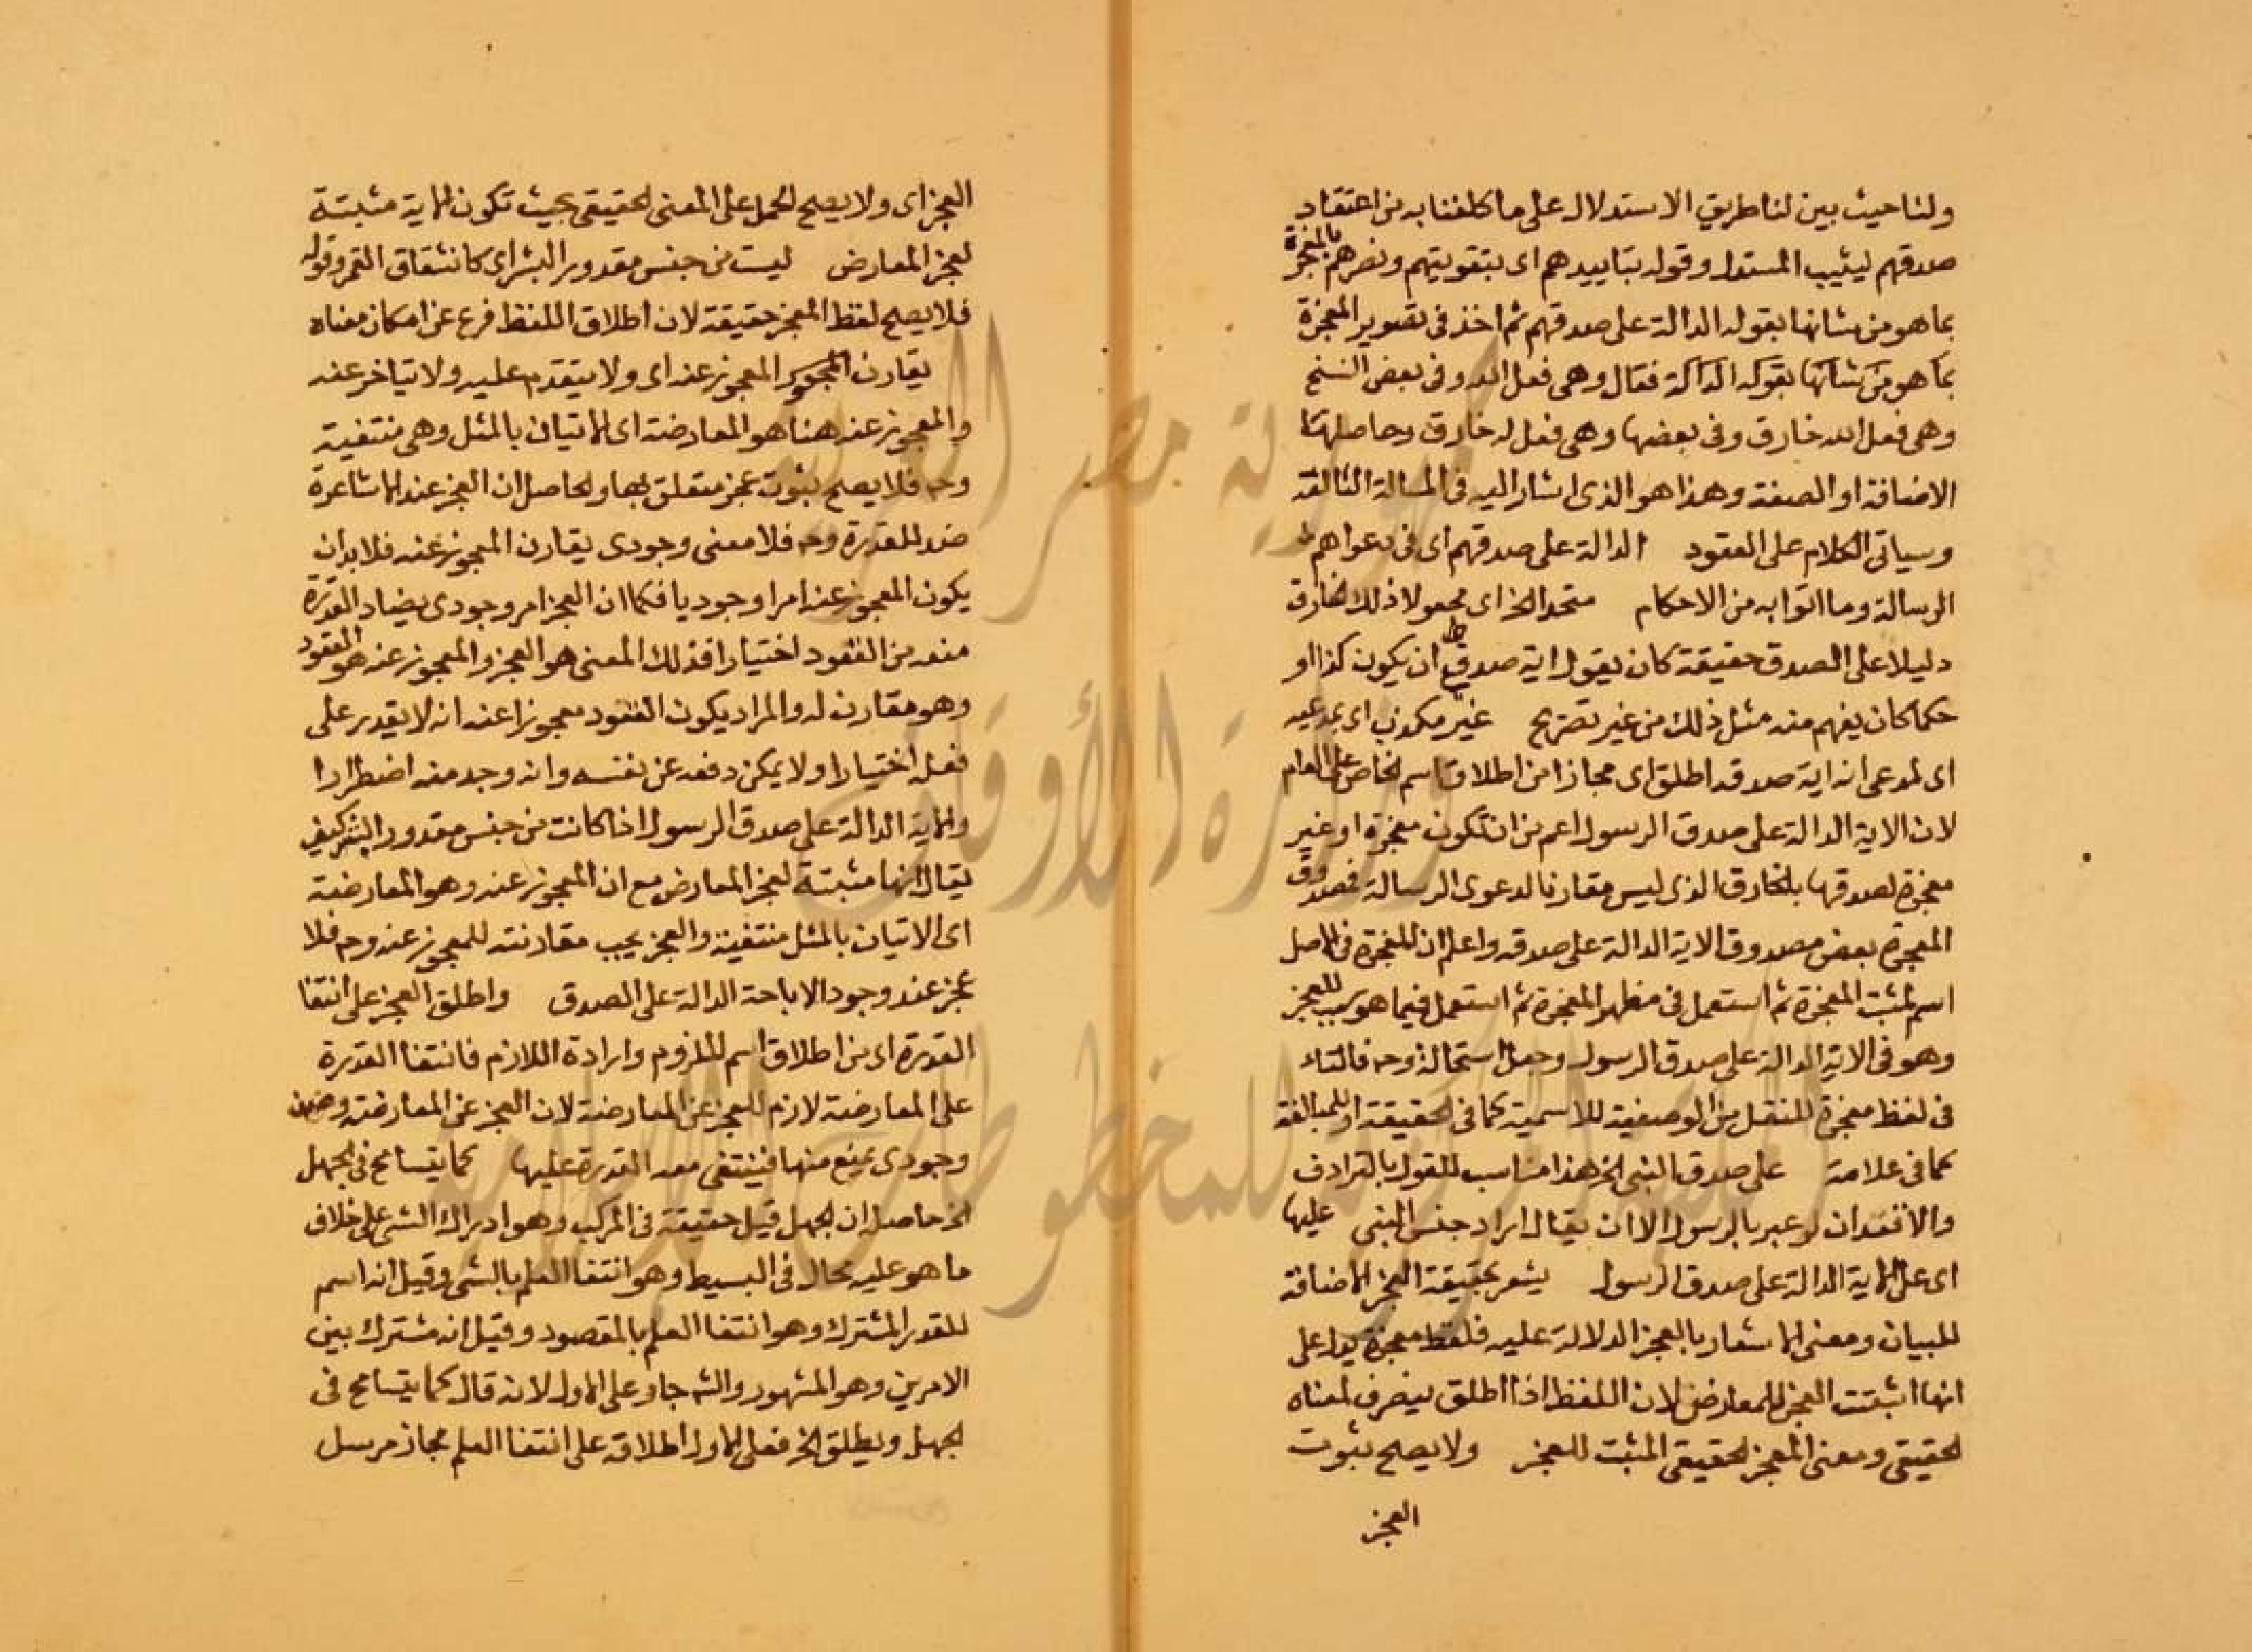 ولنا حيث بين لنا طريق الاستدلال على ما كلفنا به من اعتقاد
صدقهم ليثيب المستدل وقوله بتاييدهم اى بتقويتهم ونصرهم بالمعجزة
بما هو من شانها بقوله الدالة على صدقهم ثم اخذ فى تصوير المعجزة
بما هو من شانها بقوله الدالة فقال وهى فعل الله وفى بعض النسخ
وهى فعل الله خارق وفى بعضها وهى فعل له خارق وحاصلها
الاضافة او الصفة وهذا هو الذى اشار اليه فى المسالة الثالثة
وسياتى الكلام على العقود الدالة على صدقهم اى فى دعواهم
الرسالة وما اتوا به من الاحكام متحد الخ اى مجعولا ذلك الخارق
دليلا على الصدق حقيقة كان يقول اية صدقى ان يكون كذا او
حكما كان يفهم منه مثل ذلك من غير تصريح غير مكذب اى بمدعيه
اى لمدعى انه اية صدقه اطلق اى مجازا من اطلاق اسم الخاص على العام
لان الاية الدالة على صدق الرسول اعم من ان تكون معجزة او غير
معجزة لصدقها بالخارق الذى ليس مقارنا لدعوى الرسالة فصدوق
المعجزة بعض مصدوق الاية الدالة على صدقه واعلم ان المعجزة فى الاصل
اسم لمثبت المعجزة ثم استعمل فى مظهر المعجزة ثم استعمل فيما هو سبب للعجز
وهو فى الاية الدالة على صدق الرسول وجعل استحالة وح فالتاء
فى لفظ معجزة للنقل من الوصفية للاسمية كما فى الحقيقة او للمبالغة
كما فى علامة على صدق النبى الخ هذا مناسب للقول بالترادف
والاقعد ان لو عبر بالرسول الا ان يقال اراد جنس النبى عليها
اى على الاية الدالة على صدق الرسول يشعر بحقيقة العجز الاضافة
للبيان ومعنى الاشعار بالعجز الدلالة عليه فلفظ معجزة يدل على
انها اثبتت العجز للمعارض لان اللفظ اذا اطلق ينصرف لمعناه
الحقيقى ومعنى المعجز الحقيقى المثبت للعجز ولا يصح بثبوت
العجز
العجز اى ولا يصح الحمل على المعنى الحقيقى بحيث تكون الاية مثبتة
لعجز المعارض ليست من جنس مقدور البشر اى كانشقاق القمر وقوله
فلا يصح لفظ المعجز حقيقة لان اطلاق اللفظ فرع عن امكان معناه
يقارن المعجوز المعجوز عنه اى ولا يتقدم عليه ولا يتاخر عنه
والمعجوز عنه هنا هو المعارضة اى الاتيان بالمثل وهى منتفية
وح فلا يصح بثبوت عجز متعلق بها والحاصل ان العجز عند الاشاعرة
ضد للقدرة وح فلا معنى وجودى يقارن المعجوز عنه فلا بد ان
يكون المعجوز عنه امرا وجوديا فكما ان العجز امر وجودى يضاد القدرة
منعه من القعود اختيارا فذلك المعنى هو العجز والمعجوز عنه هو القعود
وهو مقارن له والمراد بكون القعود معجوزا عنه انه لا يقدر على
فعله اختيارا ولا يمكن دفعه عن نفسه وانه وجد منه اضطرارا
والاية الدالة على صدق الرسول اذا كانت من جنس مقدور البشر كيف
يقال انها مثبتة لعجز المعارض مع ان المعجوز عنه وهو المعارضة
اى الاتيان بالمثل منتفية والعجز يجب مقارنته للمعجوز عنه وح فلا
عجز عند وجود الاباحة الدالة على الصدق واطلق العجز على انتفا
القدرة اى من اطلاق اسم الملزوم وارادة اللازم فانتفا القدرة
على المعارضة لازم للعجز عن المعارضة لان العجز عن المعارضة
وجودى يمنع منها فينتفى معه القدرة عليها كما يتسامح فى الجهل
الخ حاصله ان الجهل قيل حقيقة فى المركب وهو ادراك الشى على خلاف
ما هو عليه مجاز فى البسيط وهو انتفا العلم بالشى وقيل انه اسم
للقدر المشترك وهو انتفا العلم بالمقصود وقيل انه مشترك بين
الامرين وهو المشهور والشه جار على الاول لانه قال كما يتسامح فى
الجهل ويطلق الخ فعلى الاول اطلاقه على انتفا العلم مجاز مرسل
جمهورية مصر العربية
وزارة الأوقاف
المكتبة المركزية للمخطوطات الإسلامية